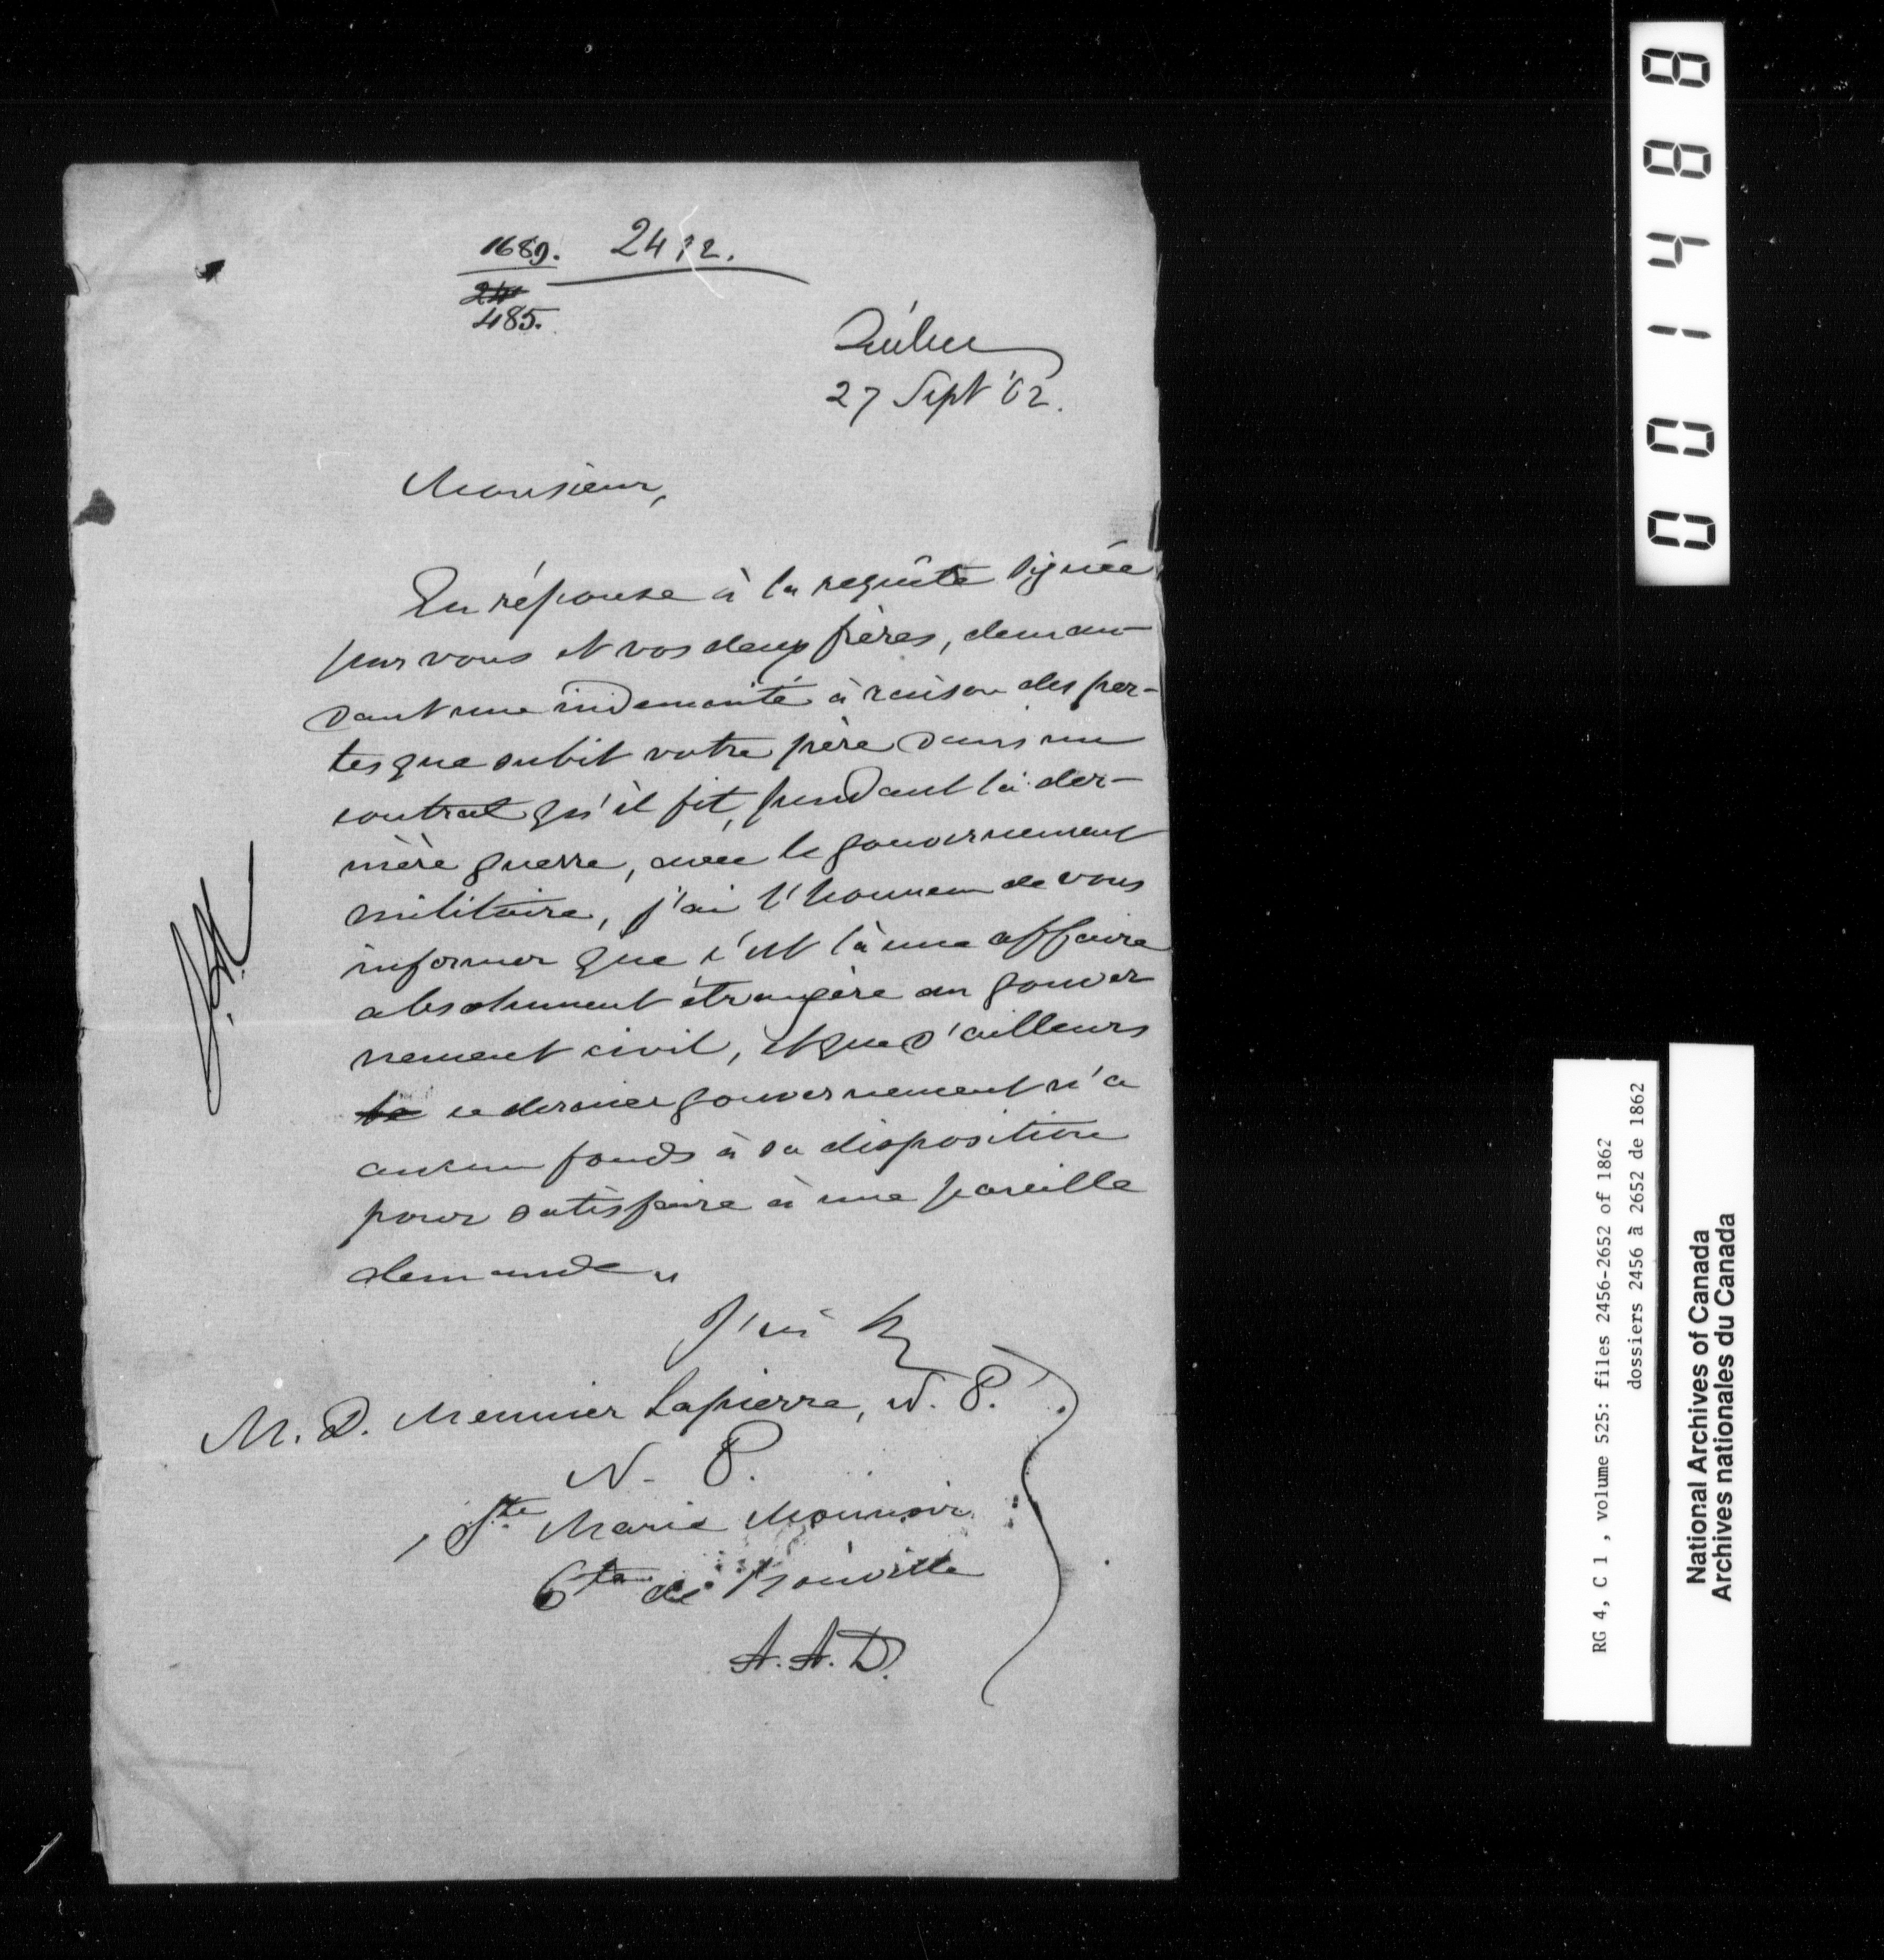 1689. 2412.
24
485.
Québec
27 Sept '62.
Monsieur,
En réponse à la requête signée
par vous et vos deux frères, deman-
dant une indemnité à raison des per-
tes que subit votre père dans un
contrat qu'il fit, pendant la der-
nière guerre, avec le gouvernement
militaire, j'ai l'honneur de vous
informer que c'est là une affaire
absolument étrangère au gouver
nement civil, et que d'ailleurs
le ce dernier gouvernement n'a
aucun fonds à sa disposition
pour satisfaire à une pareille
demande.
J'ai
M. D. Meunier Lapierre, N. P.
N. P.
Ste Marie Monnoir
Cté de Rouville
A. A. D.
001488
RG 4, C 1 , volume 525: files 2456-2652 of 1862
dossiers 2456 à 2652 de 1862
National Archives of Canada
Archives nationales du Canada